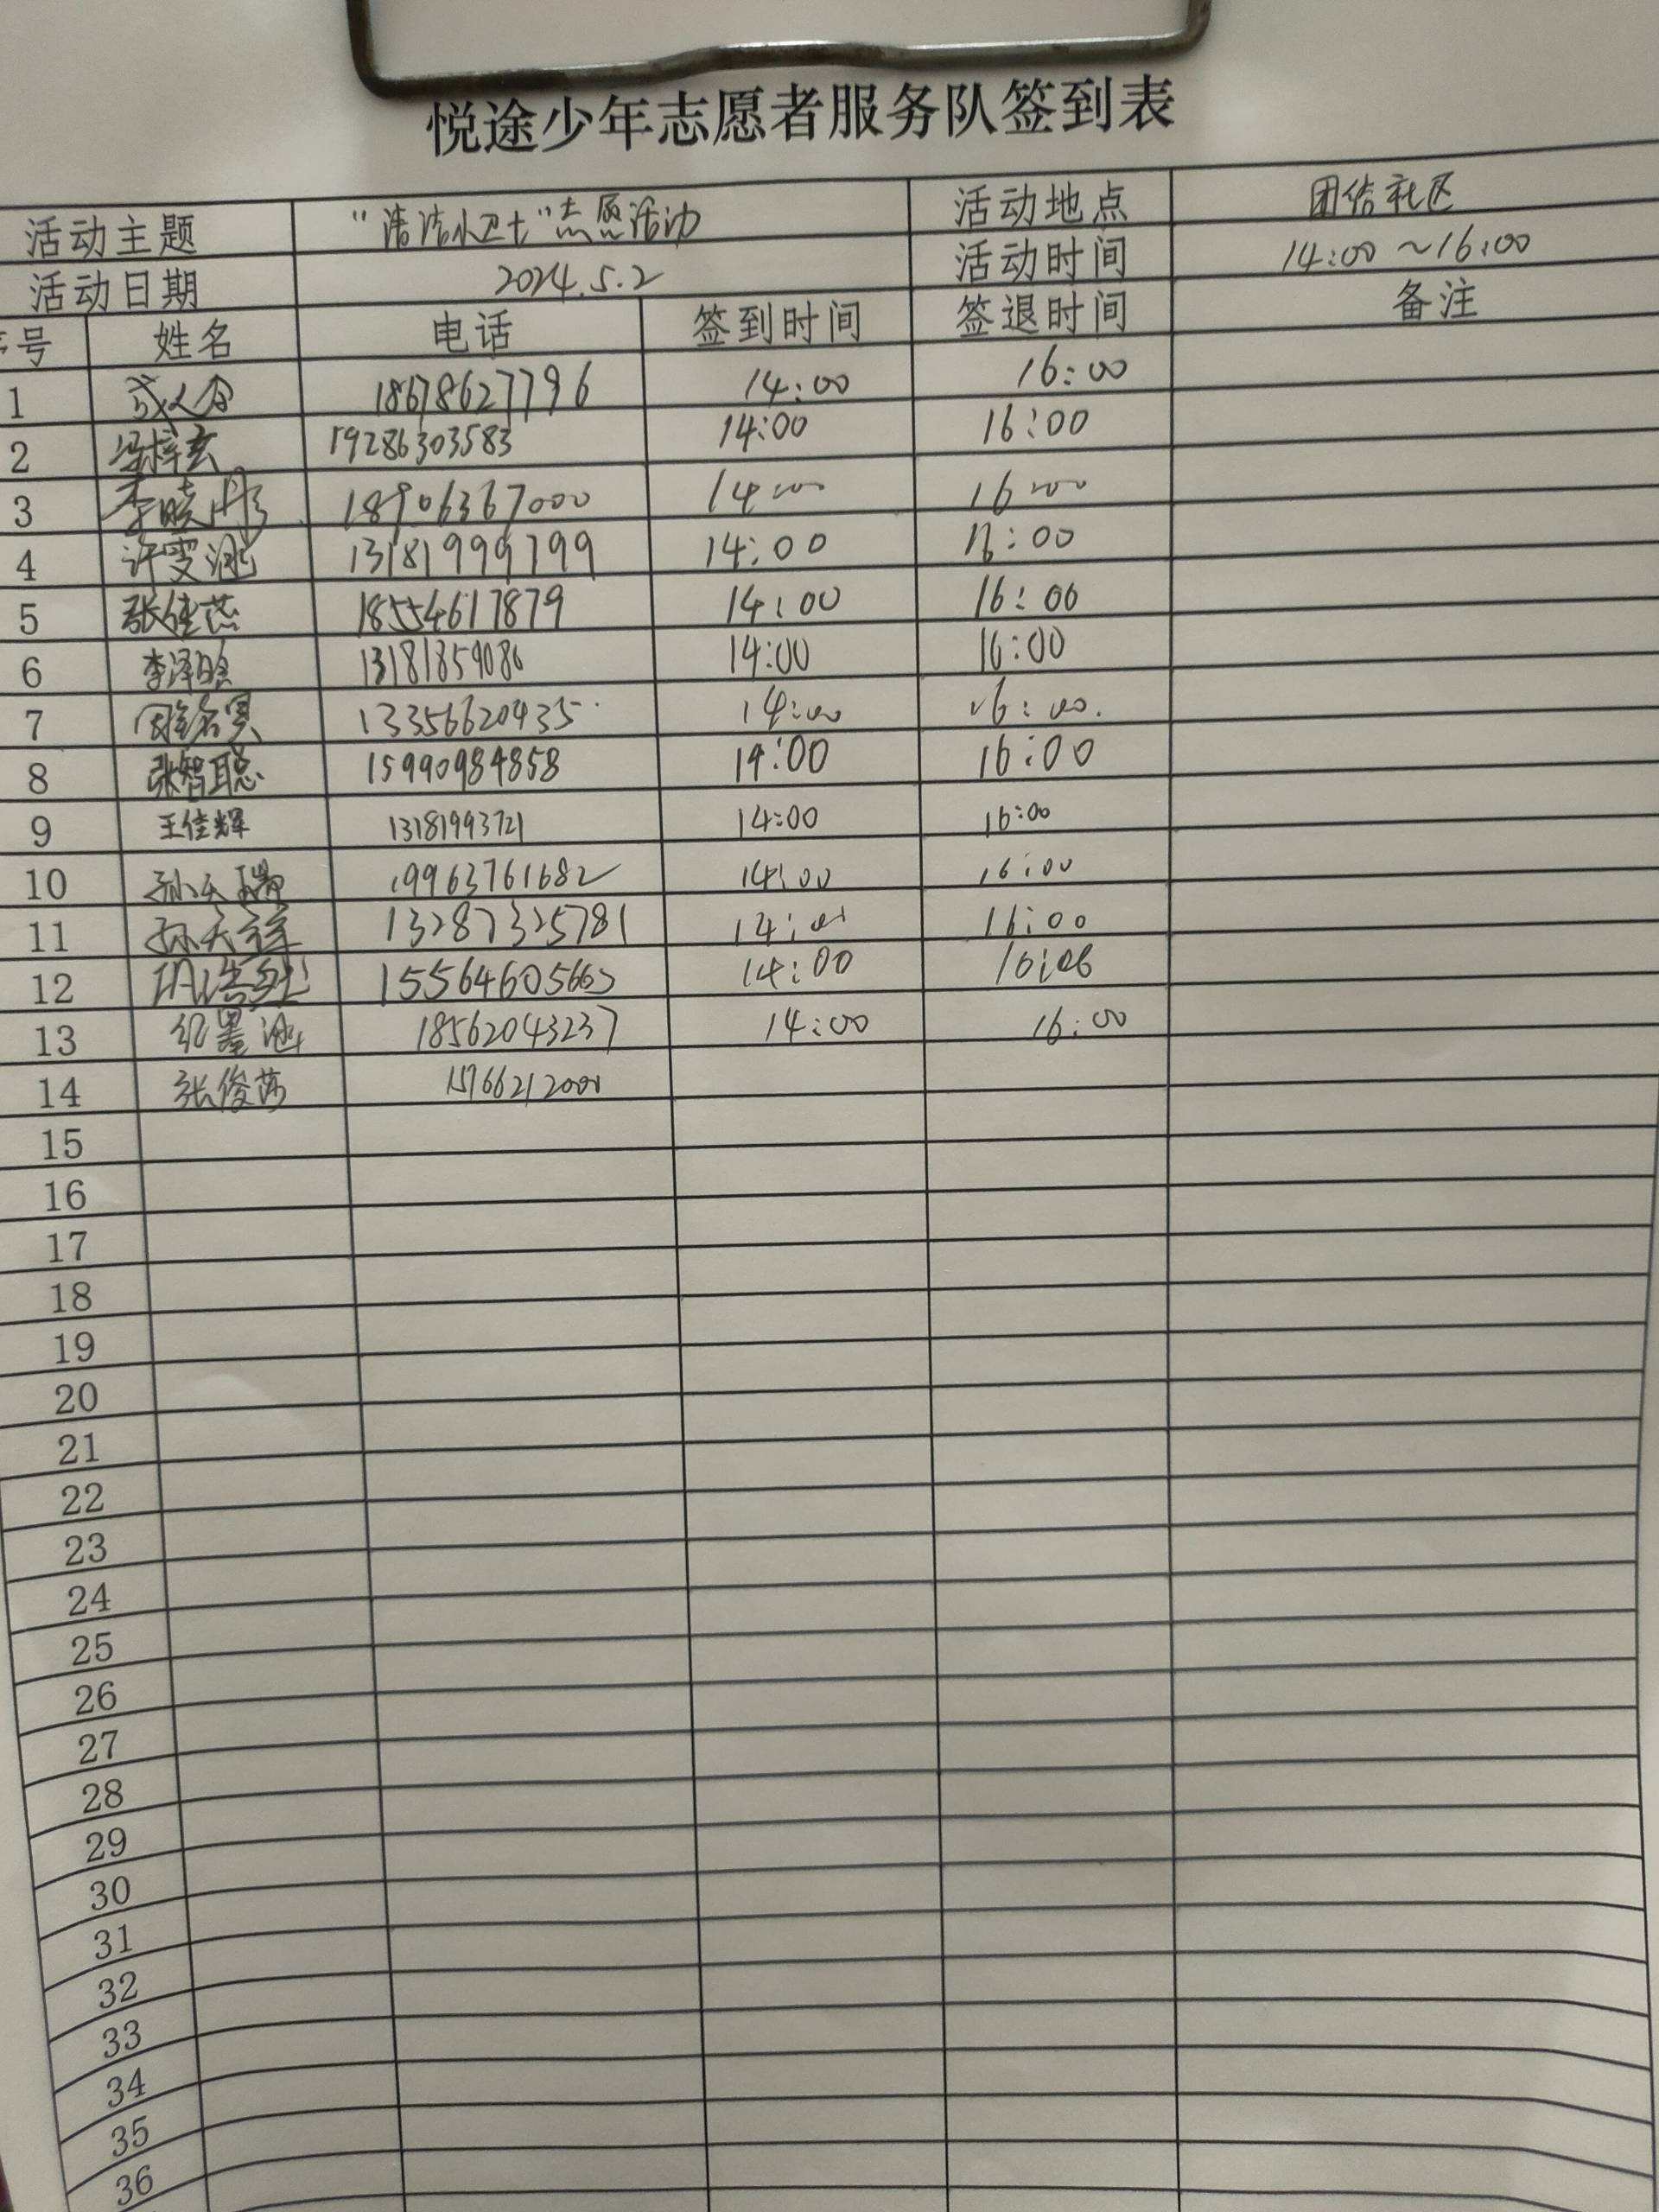 悦途少年志愿者服务队签到表
活动主题 “清洁小卫士”志愿活动 活动地点 团结社区
活动日期 2024.5.2 活动时间 14:00~16:00
号 姓名 电话 签到时间 签退时间 备注
1 18678627796 14:00 16:00
2 19286303583 14:00 16:00
3 李晓彤 18906367000 14:00 16:00
4 许雯 13181999799 14:00 16:00
5 张佳燕 18554617879 14:00 16:00
6 李泽晗 13181859086 14:00 16:00
7 13356620435 14:00 16:00.
8 张智聪 15990984858 14:00 16:00
9 王佳辉 13181993721 14:00 16:00
10 孙天瑞 19963761682 14:00 16:00
11 孙天祥 13287325781 14:00 16:00
12 14:00
13 纪墨涵 18562043237 14:00 16:00
14 张俊
15
16
17
18
19
20
21
22
23
24
25
26
27
28
29
30
31
32
33
34
35
36